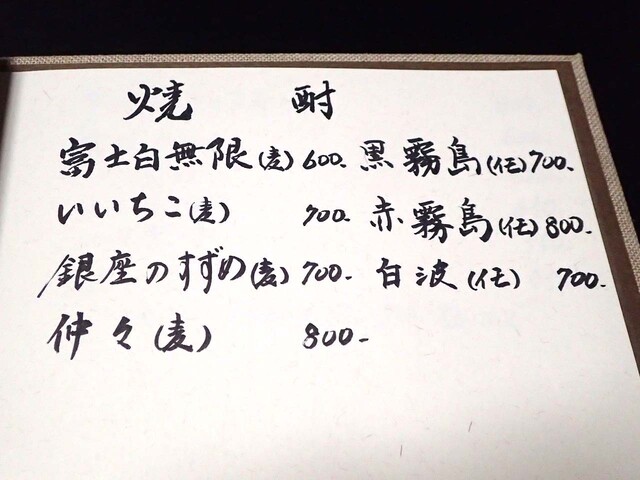 焼酎
富士白無限(麦) 600- 黒霧島(芋) 700-
いいちこ(麦) 700- 赤霧島(芋) 800-
銀座のすずめ(麦) 700- 白波(芋) 700-
仲々(麦) 800-